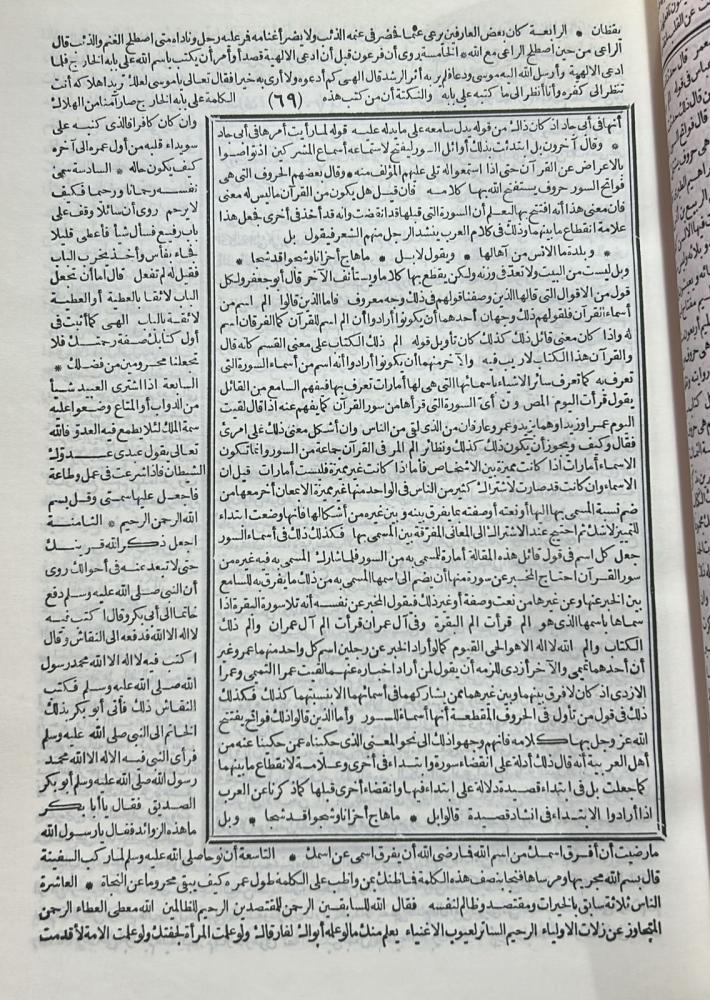 يقظان * الرابعة كان بعض العارفين يرعى غنما فحضر في غنمه الذئب ولا يضر أغنامه فمر عليه رجل وناداه متى اصطلح الغنم والذئب قال
الراعي من حين اصطلح الراعي مع الله * الخامسة روى أن فرعون قبل أن ادعى الالهية قصدا وأمر أن يكتب باسم الله على بابه الخارج فلما
ادعى الالهية وأرسل الله اليه موسى ودعا فلم ير به أثر الرشد قال الهى كم أدعوه ولا أرى به خيرا فقال تعالى يا موسى لعلك تريد اهلاكه أنت
تنظر الى كفره وأنا أنظر الى ما كتبه على بابه والنكتة أن من كتب هذه (٦٩) الكلمة على بابه الخارج صار آمنا من الهلاك
أنها في أبى جاد اذ كان ذلك من قوله يدل سامعه على ما يدله عليه قوله لما رأيت أمرها في أبى جاد
* وقال آخرون بل ابتدئت بذلك أوائل السور ليفتح لاستماعه أسماع المشركين اذ تواصوا
بالاعراض عن القرآن حتى اذا استمعوا له تلى عليهم المؤلف منه * وقال بعضهم الحروف التي هي
فواتح السور حروف يستفتح الله بها كلامه * فان قيل هل يكون من القرآن ما ليس له معنى
فان معنى هذا أنه افتتح بها ليعلم أن السورة التي قبلها قد انقضت وأنه قد أخذ في أخرى فجعل هذا
علامة انقطاع ما بينهما وذلك في كلام العرب ينشد الرجل منهم الشعر فيقول بل
* وبلدة ما الانس من آهالها * ويقول لا بل * ما هاج أحزانا وشجوا قد شجا *
وبل ليست من البيت ولا تعد في وزنه ولكن يقطع بها كلاما ويستأنف الآخر قال أبو جعفر ولكل
قول من الاقوال التي قالها الذين وصفنا قولهم في ذلك وجه معروف فاما الذين قالوا الم اسم من
أسماء القرآن فلقولهم ذلك وجهان أحدهما أن يكونوا أرادوا أن الم اسم للقرآن كما الفرقان اسم
له واذا كان معنى قائل ذلك كذلك كان تأويل قوله الم ذلك الكتاب على معنى القسم كانه قال
والقرآن هذا الكتاب لا ريب فيه والآخر منهما أن يكونوا أرادوا أنه اسم من أسماء السورة التي
تعرف به كما تعرف سائر الاشياء باسمائها التي هي لها أمارات تعرف بها فيفهم السامع من القائل
يقول قرأت اليوم المص ون أى السورة التي قرأها من سور القرآن كما يفهم عنه اذا قال لقيت
اليوم عمرا وزيدا وهما بزيد وعمرو عارفان من الذى لقى من الناس وان أشكل معنى ذلك على امرئ
فقال وكيف يجوز أن يكون ذلك كذلك ونظائر الم المر في القرآن جماعة من السور وانما تكون
الاسماء أمارات اذا كانت مميزة بين الاشخاص فأما اذا كانت غير مميزة فليست أمارات قيل ان
الاسماء وان كانت قد صارت لاشتراك كثير من الناس في الواحد منها غير مميزة الا بمعان أخر معها من
ضم نسبة المسمى بها اليها أو نعته أو صفته بما يفرق بينه وبين غيره من أشكالها فانها وضعت ابتداء
للتمييز لا شك ثم احتيج عند الاشتراك الى المعانى المفرقة بين المسمى بها فكذلك ذلك في أسماء السور
جعل كل اسم في قول قائل هذه المقالة أمارة للمسمى به من السور فلما شارك المسمى به فيه غيره من
سور القرآن احتاج المخبر عن سورة منها أن يضم الى اسمها المسمى به من ذلك ما يفرق به للسامع
بين الخبر عنها وعن غيرها من نعت وصفة أو غير ذلك فيقول المخبر عن نفسه أنه تلا سورة البقرة اذا
سماها باسمها الذى هو الم قرأت الم البقرة وفى آل عمران قرأت الم آل عمران والم ذلك
الكتاب والم الله لا اله الا هو الحى القيوم كما لو أراد الخبر عن رجلين اسم كل واحد منهما عمرو غير
أن أحدهما تميمى والآخر أزدى للزمه أن يقول لمن أراد اخباره عنهما لقيت عمرا التميمى وعمرا
الازدى اذ كان لا فرق بينهما وبين غيرهما ممن يشاركهما في أسمائهما الا بنسبتهما كذلك فكذلك
ذلك في قول من تأول في الحروف المقطعة أنها أسماء للسور وأما الذين قالوا ذلك فواتح يفتتح
الله عز وجل بها كلامه فانهم وجهوا ذلك الى نحو المعنى الذى حكيناه عمن حكينا عنه من
أهل العربية أنه قال ذلك أدلة على انقضاء سورة وابتداء في أخرى وعلامة لانقطاع ما بينهما
كما جعلت بل في ابتداء قصيدة دلالة على ابتداء فيها وانقضاء أخرى قبلها كما ذكرنا عن العرب
اذا أرادوا الابتداء في انشاد قصيدة قالوا بل * ما هاج أحزانا وشجوا قد شجا * وبل
وان كان كافرا فالذى كتبه على
سويداء قلبه من أول عمره الى آخره
كيف يكون حاله * السادسة سمى
نفسه رحمانا ورحيما فكيف
لا يرحم روى أن سائلا وقف على
باب رفيع فسأل شيأ فأعطى قليلا
فجاء بفأس وأخذ يخرب الباب
فقيل له لم تفعل قال اما أن تجعل
الباب لائقا بالعطية أو العطية
لائقة بالباب الهى كما أثبت في
أول كتابك صفة رحمتك فلا
تجعلنا محرومين من فضلك *
السابعة اذا اشترى العبيد شيأ
من الدواب أو المتاع وضعوا عليه
سمة الملك لئلا يطمع فيه العدو فالله
تعالى يقول عبدى عدوك
الشيطان فاذا شرعت في عمل وطاعة
فاجعل عليها سمتى وقل بسم
الله الرحمن الرحيم * الثامنة
اجعل ذكر الله قرينك
حتى لا تبعد عنه في أحوالك روى
أن النبى صلى الله عليه وسلم دفع
خاتما الى أبى بكر وقال اكتب فيه
لا اله الا الله فدفعه الى النقاش وقال
اكتب فيه لا اله الا الله محمد رسول
الله صلى الله عليه وسلم فكتب
النقاش ذلك فأتى أبو بكر بذلك
الخاتم الى النبى صلى الله عليه وسلم
فرأى النبى فيه لا اله الا الله محمد
رسول الله صلى الله عليه وسلم أبو بكر
الصديق فقال يا أبا بكر
ما هذه الزوائد فقال يا رسول الله
ما رضيت أن أفرق اسمك من اسم الله فما رضى الله أن يفرق اسمى عن اسمك * التاسعة أن نوحا صلى الله عليه وسلم لما ركب السفينة
قال بسم الله مجريها ومرساها فنجا بنصف هذه الكلمة فما ظنك بمن واظب على الكلمة طول عمره كيف يبقى محروما عن النجاة * العاشرة
الناس ثلاثة سابق بالخيرات ومقتصد وظالم لنفسه فقال الله للسابقين الرحمن للمقتصدين الرحيم للظالمين الله معطى العطاء الرحمن
المتجاوز عن زلات الاولياء الرحيم الساتر لعيوب الاغنياء يعلم منك ما لو علمه أبواك لفارقاك ولو علمت المرأة لجفتك ولو علمت الامة لأقدمت